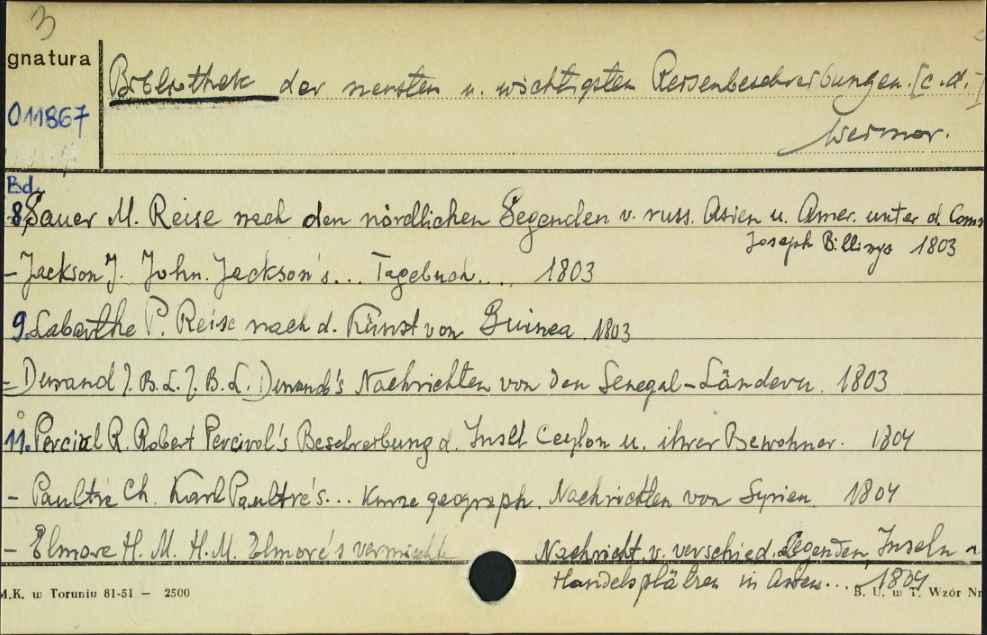 3
gnatura
Bibliothek der neusten u. wichtigsten Reisenbeschreibungen. [c.d.]
011867
Weimar.
Bd.
8, Sauer M. Reise nach den nördlichen Gegenden v. russ. Asien u. Amer. unter d. Com
Joseph Billings 1803
- Jackson J. John. Jackson's... Tagebuch.... 1803
9. Labarthe P. Reise nach d. Künst von Guinea. 1803
= Durand J.B.L. J.B.L. Durand's Nachrichten von den Senegal-Ländern. 1803
11. Percival R. Robert Percival's Beschreibung d. Insel Ceylon u. ihrer Bewohner. 1804
- Paultre Ch. Karl Paultré's... Kurze geograph. Nachrichten von Syrien. 1804
- Elmore H. M. H.M. Elmore's vermischte Nachricht. v. verschied. Gegenden, Inseln
Handelsplätzen in Asien... 1804
M.K. w Toruniu 81-51 — 2500
B. U. w T. Wzór Nr